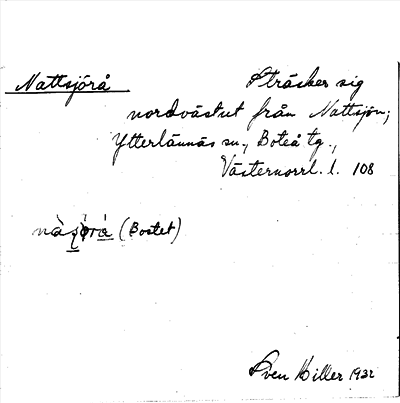 Nattsjörå Sträcker sig
nordvästut från Nattsjön,
Ytterlännäs sn., Boteå tg.,
Västernorrl. l. 108
(Bostet)
Sven Hiller 1932